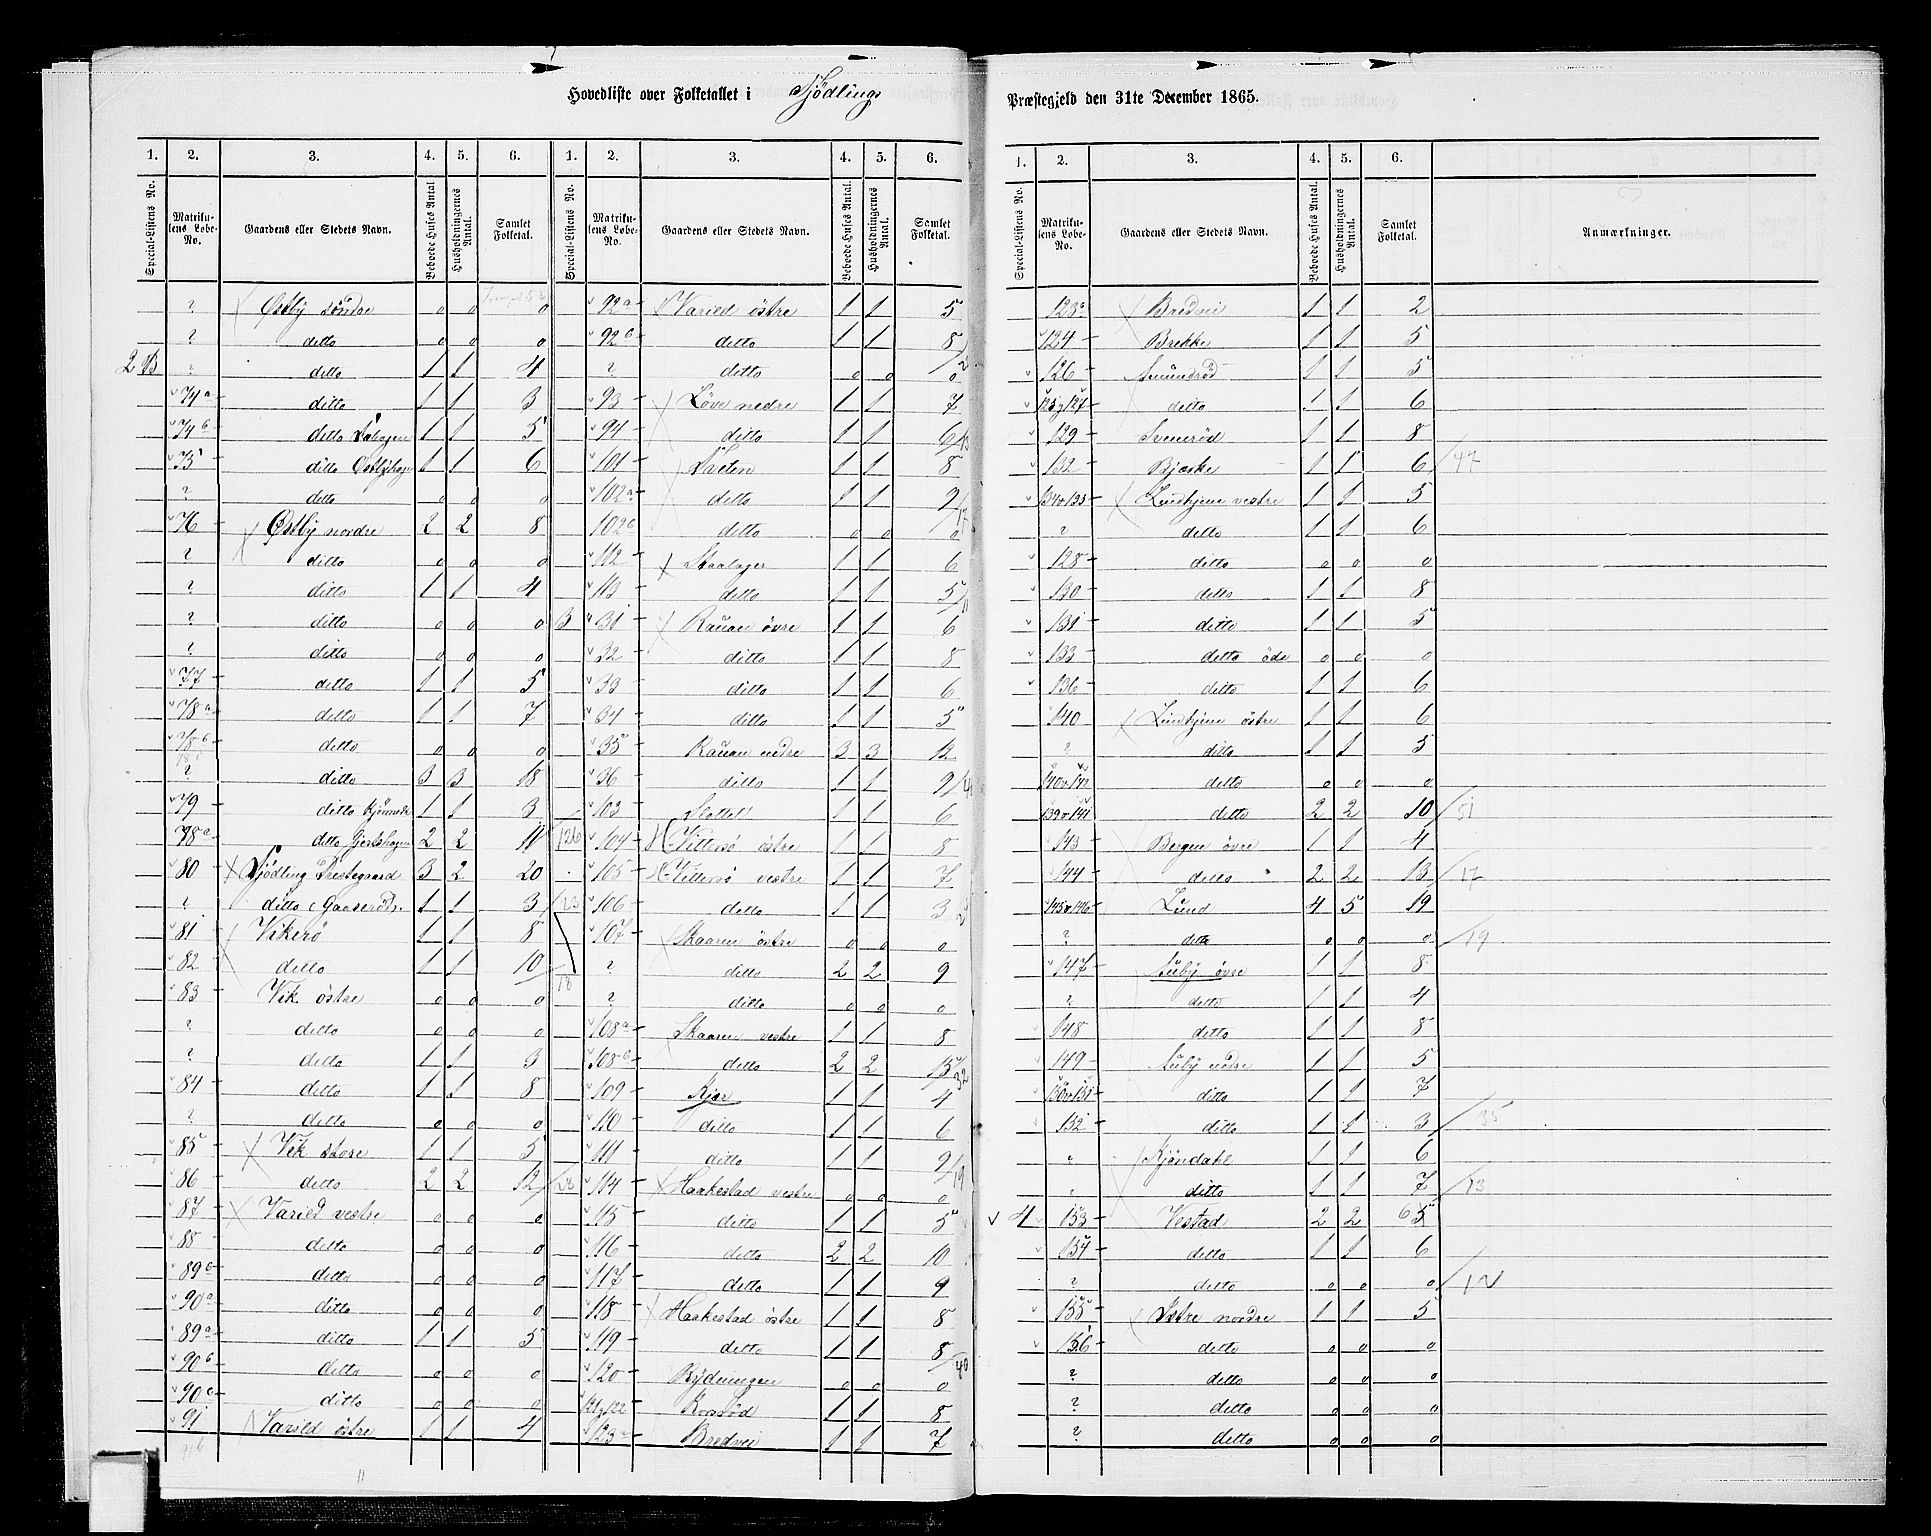 Hovedliste over Folketallet i Tjödlings Præstegjeld den 31te December 1865.
1. 2. 3. 4. 5. 6. 1. 2. 3. 4. 5. 6.
Special-Listens No. Matrikulens Løbe-No. Gaardens eller Stedets Navn. Beboede Huses Antal Husholdningernes Antal. Samlet Folketal. Special-Listens No. Matrikulens Løbe-No. Gaardens eller Stedets Navn. Beboede Huses Antal. Husholdningernes Antal. Samlet Folketal.
? Østby söndre 0 0 0
? ditto 0 0 0
2 B ? ditto 1 1 4
74a ditto 1 1 3
74b ditto 1 1 5
75 ditto Østbyhagen 1 1 6
? ditto 0 0 0
76 Østby nordre 2 2 8
? ditto 0 0 0
? ditto 1 1 4
? ditto 0 0 0
? ditto 0 0 0
77 ditto 1 1 5
78a ditto 1 1 7
78b ditto 0 0 0
? ditto 3 3 18
79 ditto 1 1 3
78a ditto Gjertshagen 2 2 11 /126
80 Tjödling Prestegaard 3 2 20
? ditto Gaaseröd 1 1 3 /23
81 Vikerö 1 1 8
82 ditto 1 1 10 /18
83 Vik östre 0 0 0
? ditto 0 0 0
? ditto 1 1 3
84 ditto 1 1 8
? ditto 0 0 0
85 Vik store 1 1 5
86 ditto 2 2 12 /28
87 Varild vestre 0 0 0
88 ditto 0 0 0
89b ditto 0 0 0
90a ditto 0 0 0
89a ditto 1 1 5
90b ditto 0 0 0
90c ditto 0 0 0
91 Varild östre 1 1 4
92a Varild östre 1 1 5
92b ditto 1 1 8
? ditto 0 0 0
93 Löve nedre 1 1 7
94 ditto 1 1 6 /13
101 Sæten 1 1 8
102a ditto 1 1 9 /17
102b ditto 0 0 0
112 Skaalager 1 1 6
113 ditto 1 1 5 /11
3 31 Rauan övre 1 1 6
32 ditto 1 1 8
33 ditto 1 1 6
34 ditto 1 1 5
35 Rauan nedre 3 3 12
36 ditto 1 1 9
103 Slottet 1 1 6
104 Vittersö östre 1 1 8
105 Vittersö vestre 1 1 7
106 ditto 1 1 3
107 Skaaren östre 0 0 0
? ditto 2 2 9
? ditto 0 0 0
108a Skaaren vestre 1 1 8
108b ditto 2 2 15 /32
109 Kjær 1 1 4
110 ditto 1 1 6
111 ditto 1 1 9 /19
114 Haakestad vestre 0 0 0
115 ditto 1 1 5
116 ditto 2 2 10
117 ditto 1 1 9
118 Haakestad östre 1 1 8
119 ditto 1 1 8 /40
120 Rydningen 0 0 0
121 g 122 Rossöd 1 1 8
123a Bredvei 1 1 7
1. 2. 3. 4. 5. 6.
Special-Listens No. Matrikulens Løbe-No. Gaardens eller Stedets Navn. Beboede Huses Antal. Husholdningernes Antal. Samlet Folketal. Anmærkninger.
123b Bredvei 1 1 2
124 Brekke 1 1 5
126 Amundröd 1 1 5
125 g 127 ditto 1 1 6
129 Svenröd 1 1 8
132 Bjerke 1 1 6 /47
134 o 135 Lindhjem vestre 1 1 5
? ditto 1 1 6
128 ditto 0 0 0
130 ditto 1 1 8
131 ditto 1 1 5
133 ditto öde 0 0 0
136 ditto 1 1 6
140 Lindhjem östre 1 1 6
? ditto 1 1 5
140 o 142 ditto 0 0 0
139 o 141 ditto 2 2 10 /51
143 Bergen övre 1 1 4
144 ditto 2 2 13 /17
145 o 146 Lund 4 5 19
? ditto 0 0 0 /19
147 Auby övre 1 1 8
? ditto 1 1 4
148 ditto 1 1 8
149 Auby nedre 1 1 5
150 o 151 ditto 1 1 7
152 ditto 1 1 3 /35
Kjöndahl 1 1 6
ditto 1 1 7 /13
4 153 Vestad 2 2 6
154 ditto 1 1 6
? ditto 0 0 0 /12
155 Istre nordre 1 1 5
156 ditto 0 0 0
? ditto 0 0 0
? ditto 0 0 0
? ditto 0 0 0